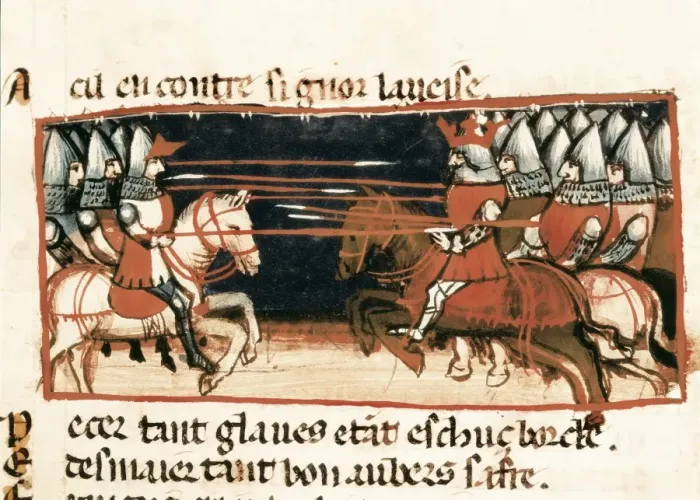 A cil en contre signor laueise.
P ecer tant glaues etāt eschuç borcle.
E desmaier tant bon aubers safre.